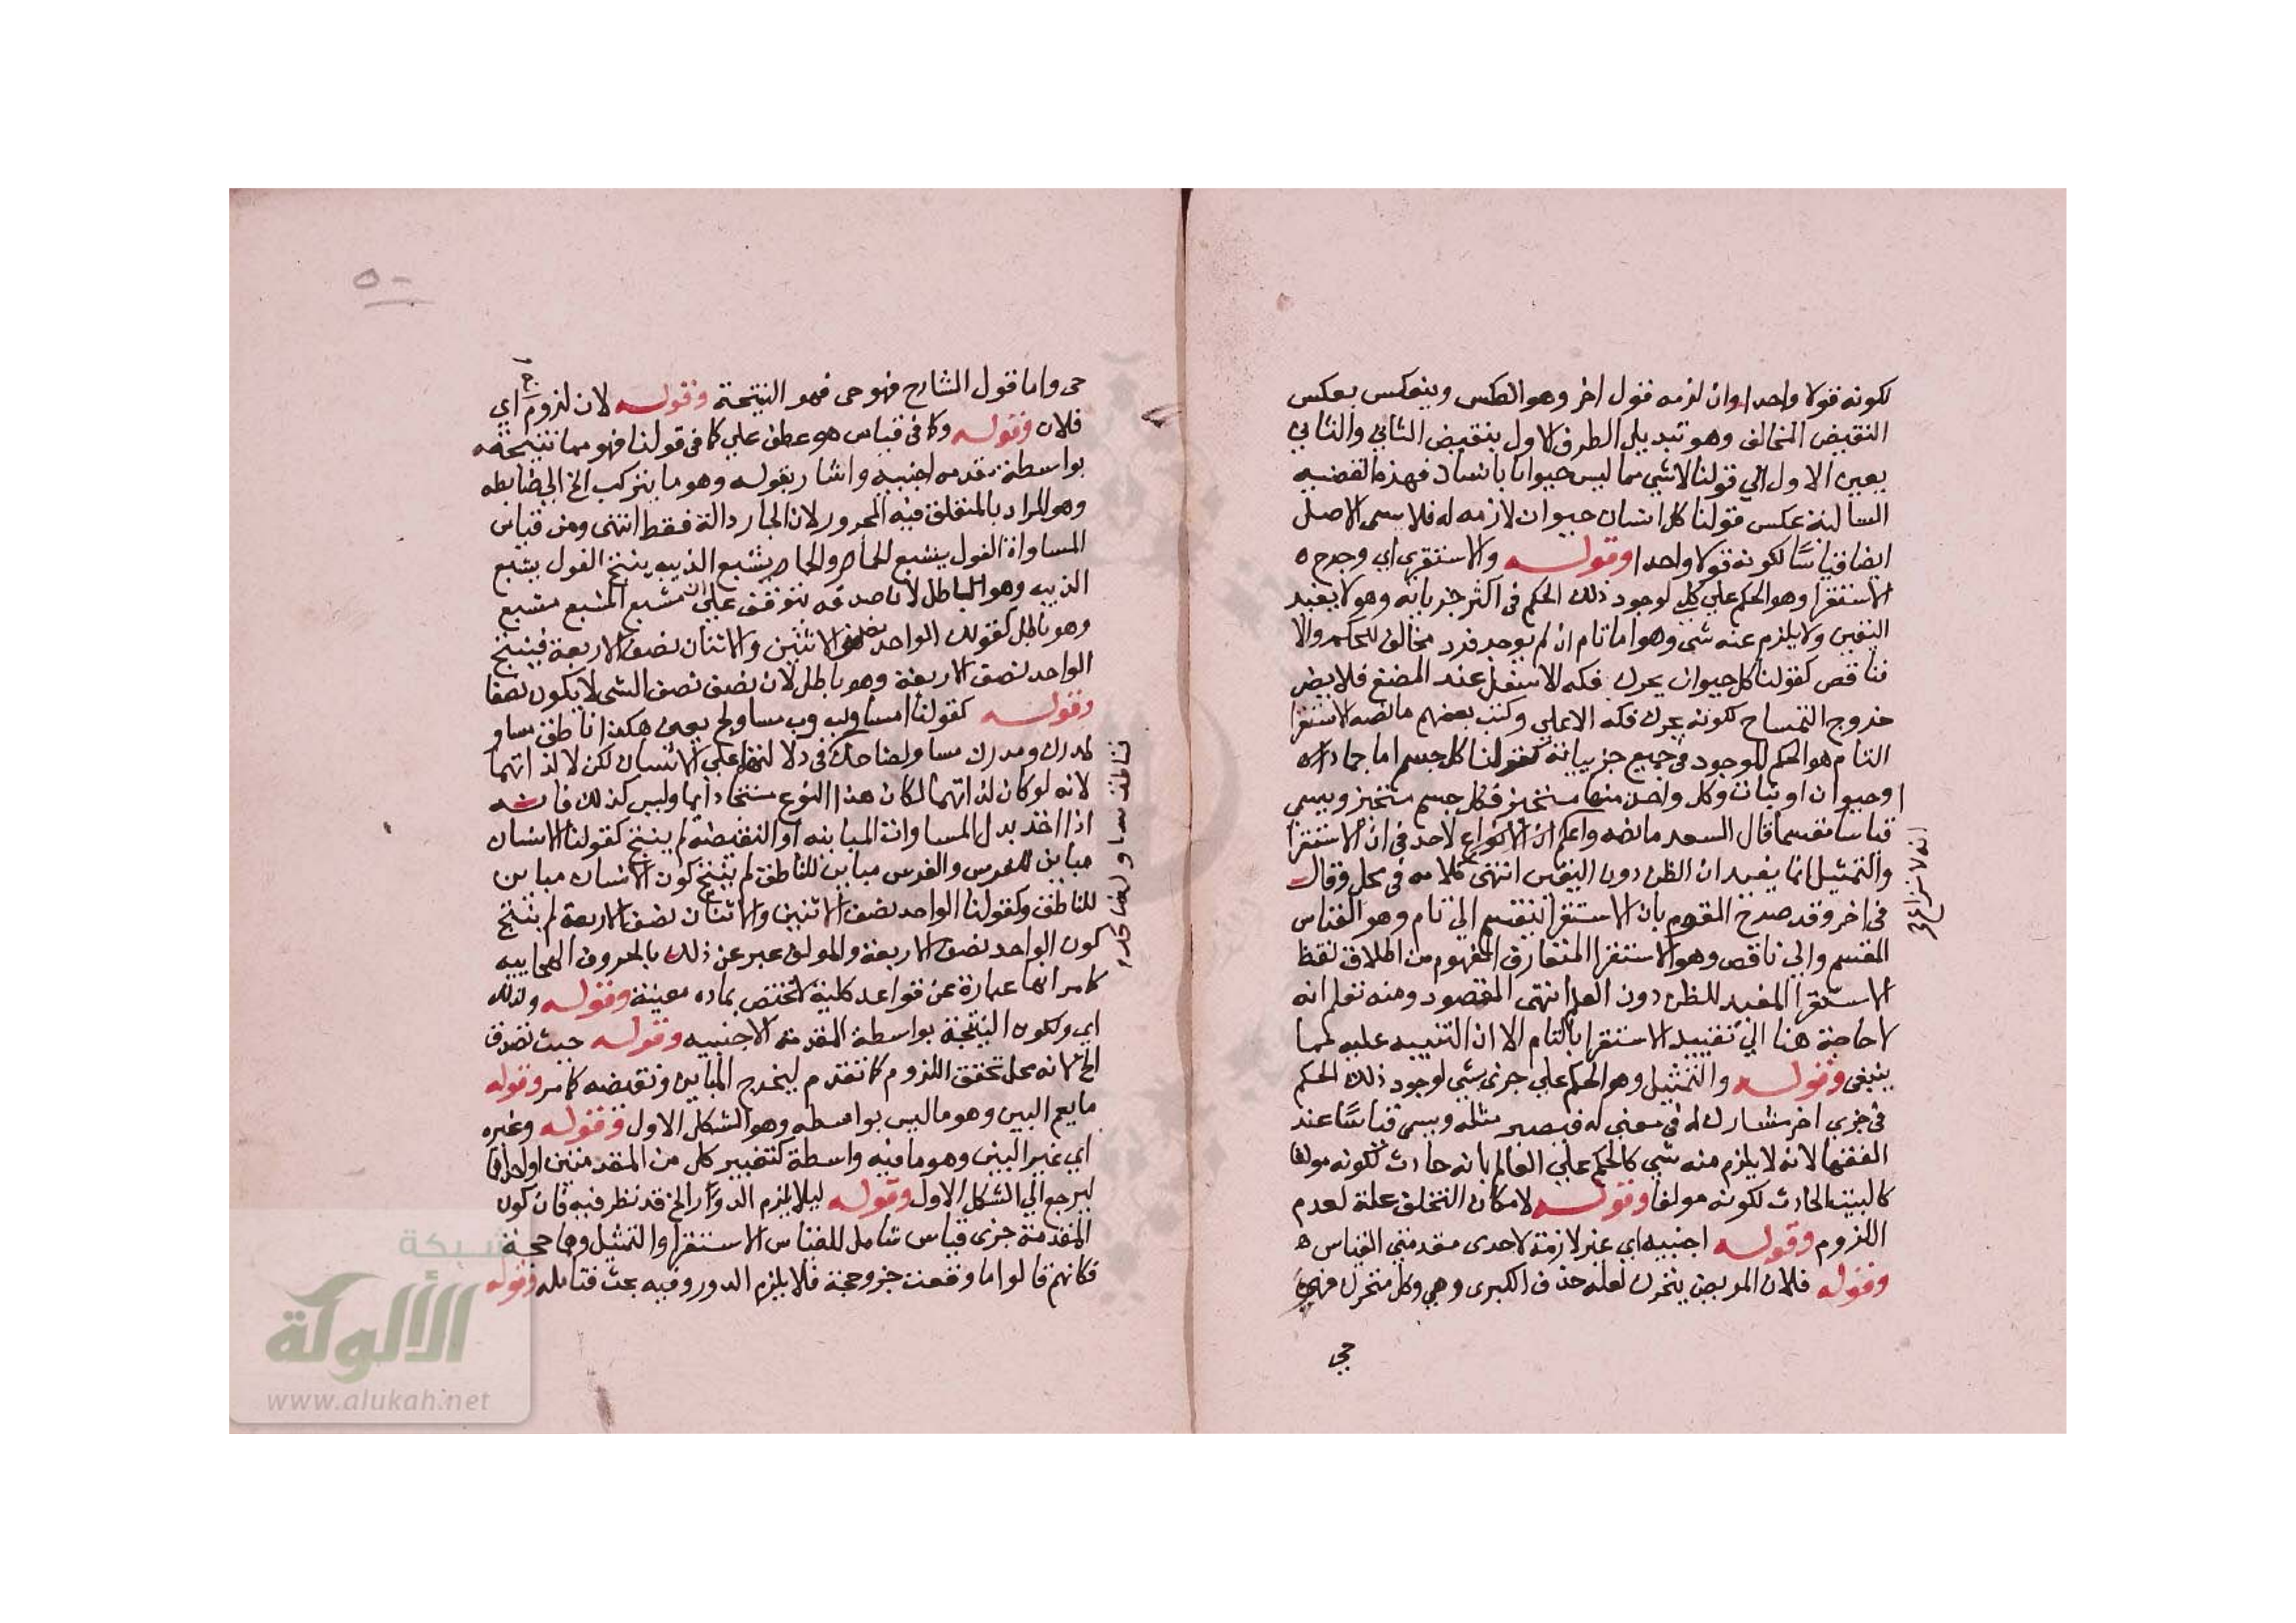 لكونه قولا واحدا وان لزمه قول اخر وهو العكس وينعكس بعكس
النقيض المخالف وهو تبديل الطرف الاول بنقيض الثاني والثاني
بعين الاول الي قولنا لاشي مما ليس حيوانا بانسان فهذه القضيه
السالبة عكس قولنا كل انسان حيوان لازمه له فلا يسمي الاصل
ايضا قياسًا لكونه قولا واحدا وقوله والاستقري اي وخرج ه
الاستقرا وهو الحكم علي كلي لوجود ذلك الحكم في اكثر جزياته وهو لا يفيد
اليقين ولا يلزم عنه شي وهو اما تام ان لم يوجد فرد مخالف للحكم والا
فناقص كقولنا كل حيوان يحرك فكه الاسفل عند المضغ فلا يضر
خروج التمساح لكونه يحرك فكه الاعلي وكتب بعضهم ما نصه الاستقرا
التام هو الحكم الموجود في جميع جزيياته كقولنا كل جسم اما جماد
او حيوان او نبات وكل واحد منها متحيز فكل جسم متحيز ويسمي
قياسا مقسما قال السعد ما نصه واعلم انه لا نزاع لاحد في ان الاستقرا
والتمثيل انما يفيدان الظن دون اليقين انتهي كلامه في محل وقال
في اخر وقد صرح القوم بان الاستقرا ينقسم الي تام وهو القياس
المقسم والي ناقص وهو الاستقرا المتعارف المفهوم من اطلاق لفظ
الاستقرا المفيد للظن دون العلم انتهي المقصود ومنه تعلم انه
لا حاجة هنا الي تقييد الاستقرا بالتام الا ان التنبيه عليه كما
ينبغي وقوله والتمثيل وهو الحكم علي جزي شي لوجود ذلك الحكم
في جزي اخر مشارك له في معني له فيصير مثله ويسمي قياسًا عند
الفقها لانه لا يلزم منه شي كالحكم علي العالم بانه حادث لكونه مولفا
كالبيت الحادث لكونه مولفا وقوله لامكان التخلف علة لعدم
اللزوم وقوله اجنبيه اي غير لازمة لاحدي مقدمتي القياس ه
وقوله فلان المريض يتحرك لعله حذف الكبري وهي وكل متحرك فهو
حي
انه لا نزاع صح
٥٠
حي واما قول الشارح فهو حي فهو النتيجة وقوله لان لزوم اي
فلان وقوله وكا في قياس هو عطف علي كا في قولنا فهو مما نتيجته
بواسطة مقدمه اجنبيه واشار بقوله وهو ما يتركب الخ الي ضابطه
وهو المراد بالمتعلق فيه المجرور لان الجار دالة فقط انتهي ومن قياس
المساواة الفول يشبع الحمار والحمار يشبع الذيب ينتج الفول يشبع
الذيب وهو الباطل لان صدقه يتوقف علي ان مشبع المشبع مشبع
وهو باطل كقولك الواحد نصف الاثنين والاثنان نصف الاربعة فينتج
الواحد نصف الاربعة وهو باطل لان نصف نصف الشي لا يكون نصفا
وقوله كقولنا ا مساو لب وب مساو لج يعني هكذا ناطق مساو
لمدرك ومدرك مساو لضاحك في دلالتها علي الانسان لكن لا لذاتهما
لانه لو كان لذاتهما لكان هذا النوع منتجا دايما وليس كذلك فانه
اذا اخذ بدل المساواة المباينه او النقيضة لم ينتج كقولنا الانسان
مباين للفرس والفرس مباين للناطق لم ينتج كون الانسان مباين
للناطق وكقولنا الواحد نصف الاثنين والاثنان نصف الاربعة لم ينتج
كون الواحد نصف الاربعة والمولف عبر عن ذلك بالحروف الهجاييه
كما مر انها عبارة عن قواعد كلية لا تختص بماده معينة وقوله ولذلك
اي ولكون النتيجة بواسطة المقدمة الاجنبيه وقوله حيث تصدق
الخ لانه محل تحقق اللزوم كما تقدم ليخرج المباين ونقيضه كما مر وقوله
ما يعم البين وهو ما ليس بواسطه وهو الشكل الاول وقوله وغيره
اي غير البين وهو ما فيه واسطة كتغيير كل من المقدمتين او احداهما
ليرجع الي الشكل الاول وقوله ليلا يلزم الدور الخ قد نظر فيه فان كون
المقدمة جزي قياس شامل للقياس الاستقرا والتمثيل وهما حجة
فكانهم قالوا ما وقعت جزو حجة فلا يلزم الدور وفيه بحث فتامله وقوله
ناطق مساو لضاحك
شبكة
الألوكة
www.alukah.net